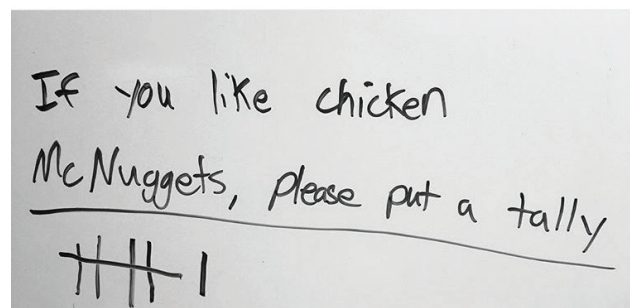 If you like chicken
McNuggets, please put a tally